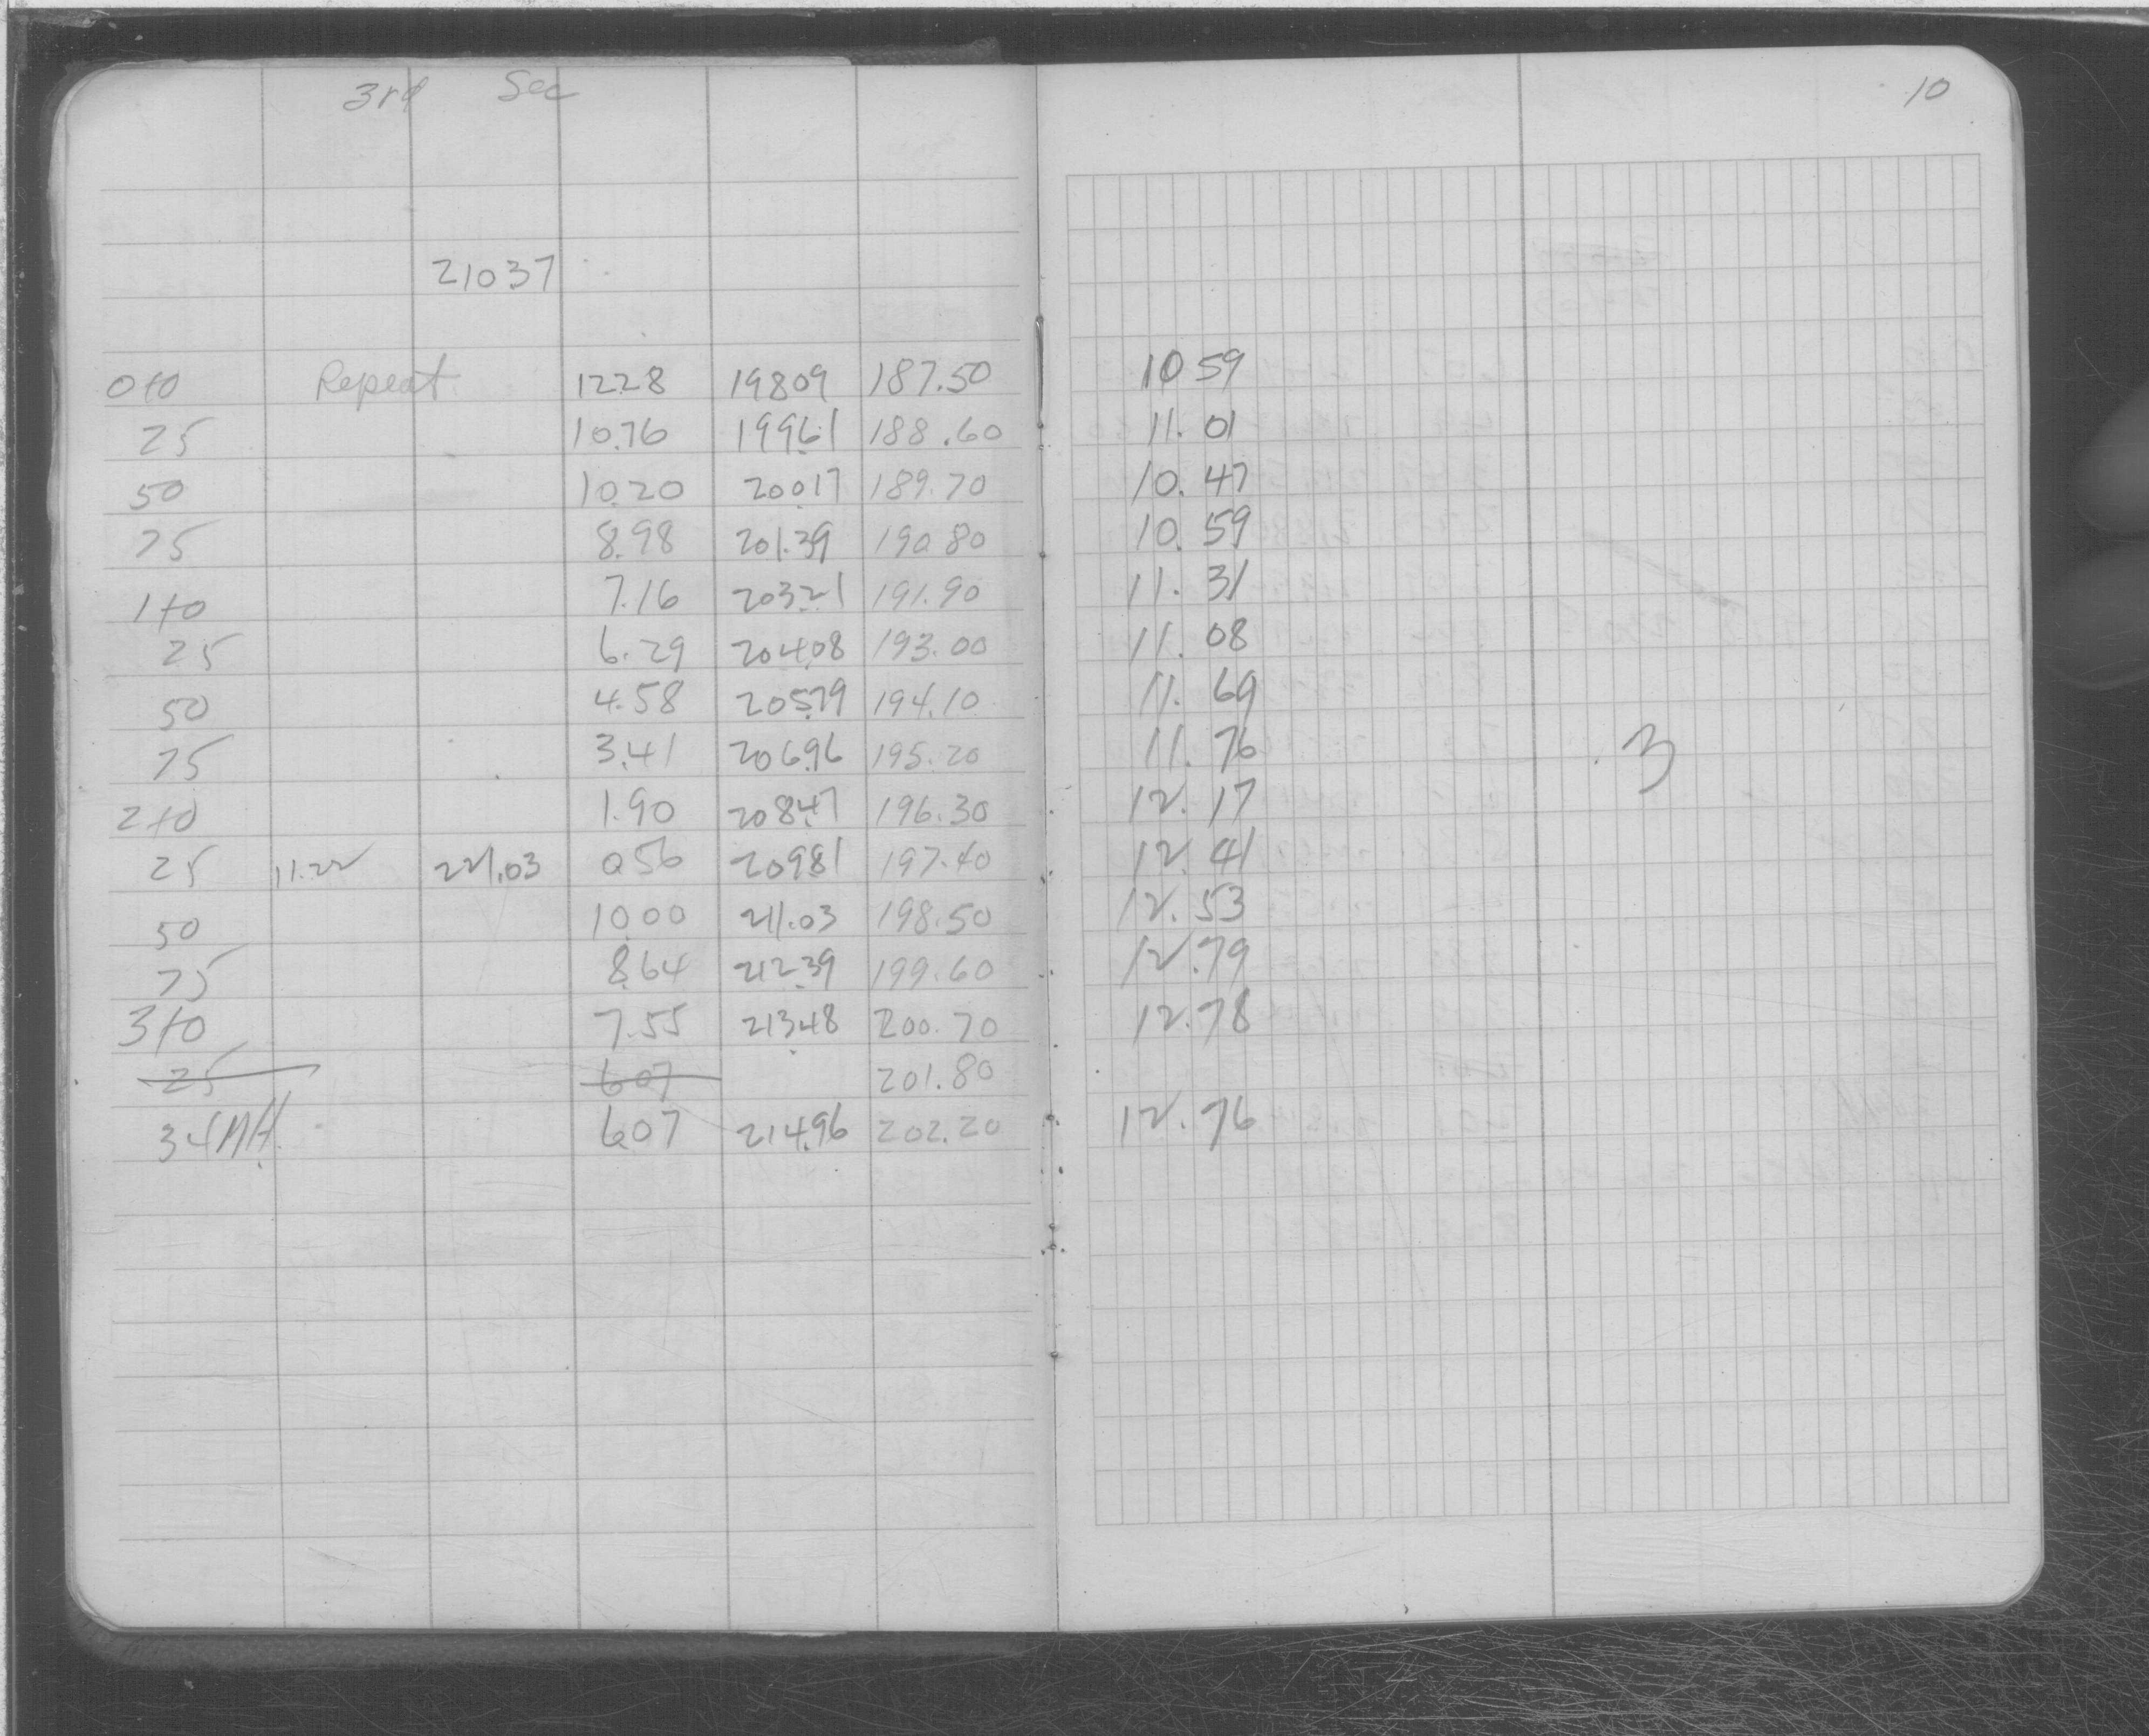 3rd Sec
10
210.37
0+0 Repeat 12.28 198.09 187.50 10 59
25 10.76 199.61 188.60 11. 01
50 10.20 200.17 189.70 10. 47
75 8.98 201.39 190.80 10. 59
1+0 7.16 203.21 191.90 11. 31
25 6.29 204.08 193.00 11. 08
50 4.58 205.79 194.10 11. 69
75 3.41 206.96 195.20 11. 76
3
2+0 1.90 208.47 196.30 12. 17
25 11.22 221.03 0.56 209.81 197.40 12. 41
50 10.00 211.03 198.50 12. 53
75 8.64 212.39 199.60 12.79
3+0 7.55 213.48 200.70 12.78
25 607 201.80
34 MH 6.07 214.96 202.20 12.76